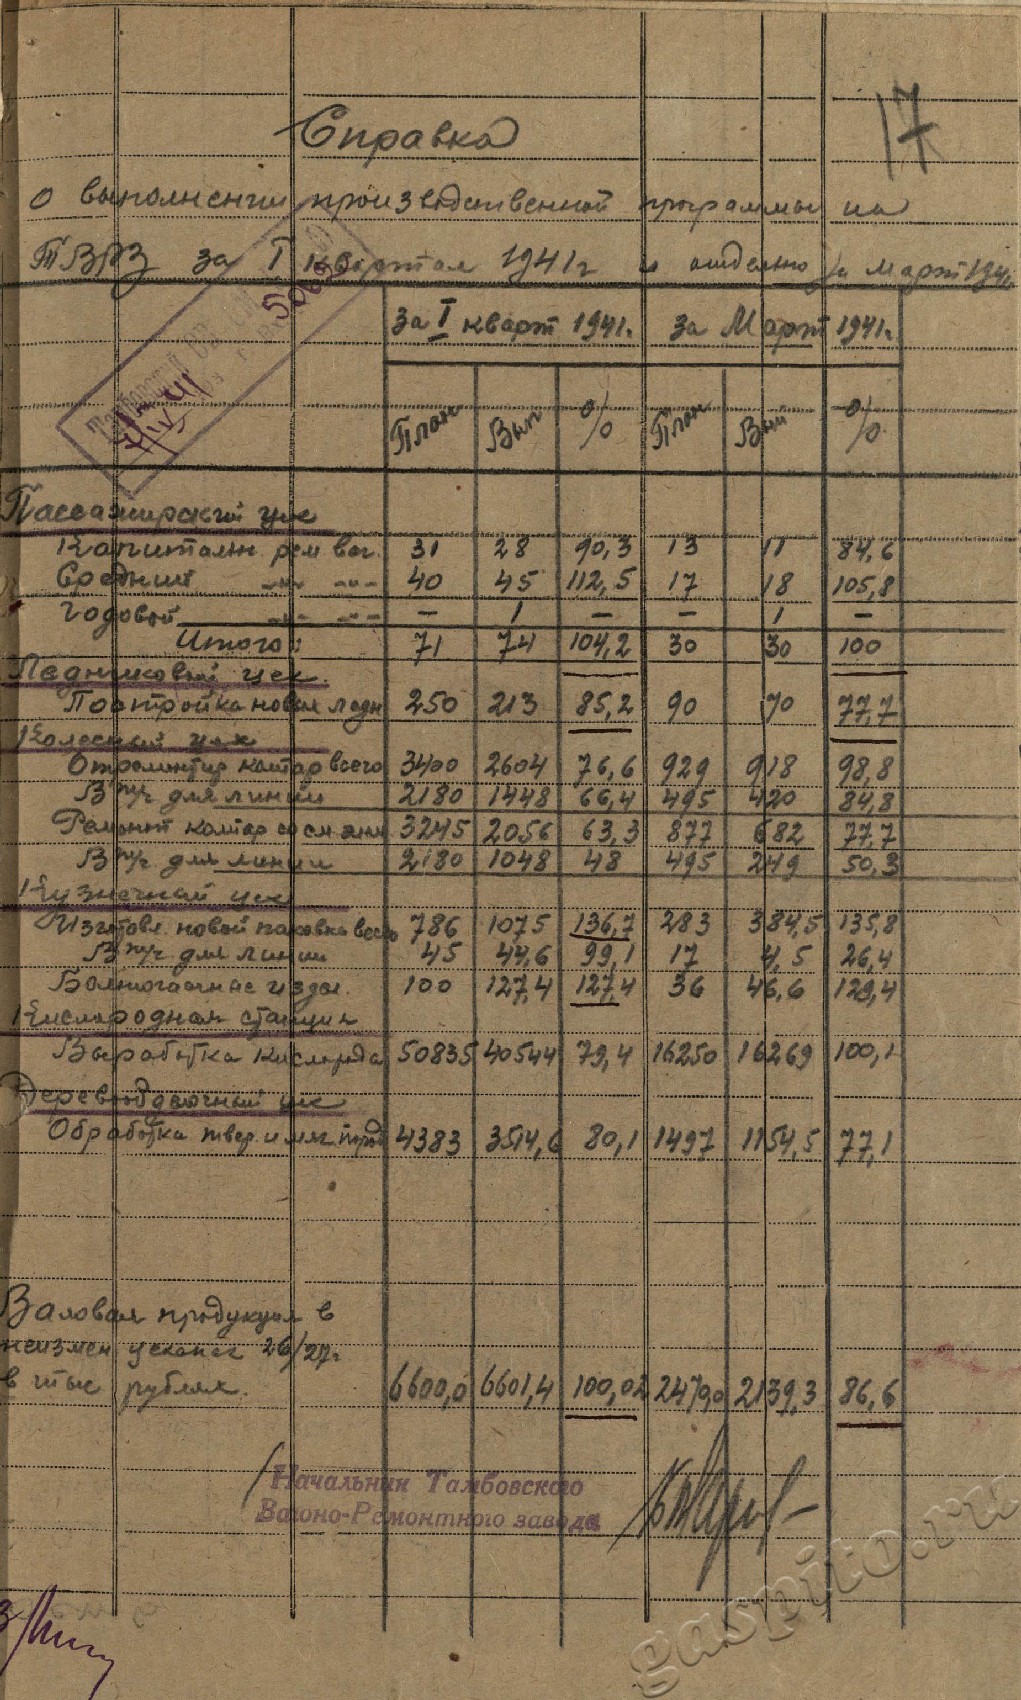 17
Справка
о выполнении производственной программы на
ТВРЗ за I квартал 1941 г и отдельно за март 1941 г.
За I кварт 1941 г. За Март 1941 г.
План Вып % План Вып %
Пассажирский цех
Капитальн. рем ваг. 31 28 90,3 13 11 84,6
Средний -"- -"- 40 45 112,5 17 18 105,8
Годовой -"- -"- – 1 – – 1 –
Итого: 71 74 104,2 30 30 100
Ледниковый цех.
Постройка новых ледн 250 213 85,2 90 70 77,7
Колесный цех
Отремонтир колпар всего 3400 2604 76,6 929 918 98,8
В т/ч для линии 2180 1448 66,4 495 420 84,8
Ремонт колпар со см элем 3245 2056 63,3 877 682 77,7
В т/ч для линии 2180 1048 48 495 249 50,3
Кузнечный цех
Изготовл. новой поковки всего 786 1075 136,7 283 384,5 135,8
В т/ч для линии 45 44,6 99,1 17 4,5 26,4
Болтогаечные изд. 100 127,4 127,4 36 46,6 129,4
Кислородная станция
Выработка кислорода 50835 40544 79,4 16250 16269 100,1
Деревообделочный цех
Обработка твер. и мяг. пород 4383 3514,6 80,1 1497 1154,5 77,1
Валовая продукция в
неизмен ценах 26/27 г.
в тыс рублях. 6600,0 6601,4 100,02 2470,0 2139,3 86,6
Начальник Тамбовского
Вагоно-Ремонтного завода
gaspito.ru